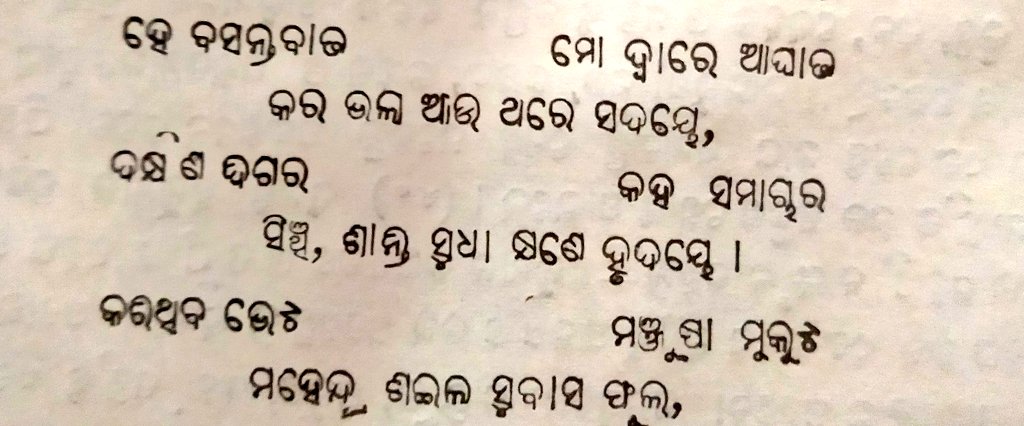 ହେ ବସନ୍ତବାତ ମୋ ଦ୍ୱାରେ ଆଘାତ
କର ଭଲା ଆଉ ଥରେ ସଦୟେ,
ଦକ୍ଷିଣ ଦଗର କହ ସମାଚାର
ସିଞ୍ଚ, ଶାନ୍ତ ସୁଧା କ୍ଷଣେ ହୃଦୟେ ।
କରିଥିବ ଭେଟ ମଞ୍ଜୁଷା ମୁକୁଟ
ମହେନ୍ଦ୍ର ଶଇଳ ସୁବାସ ଫୁଲ,